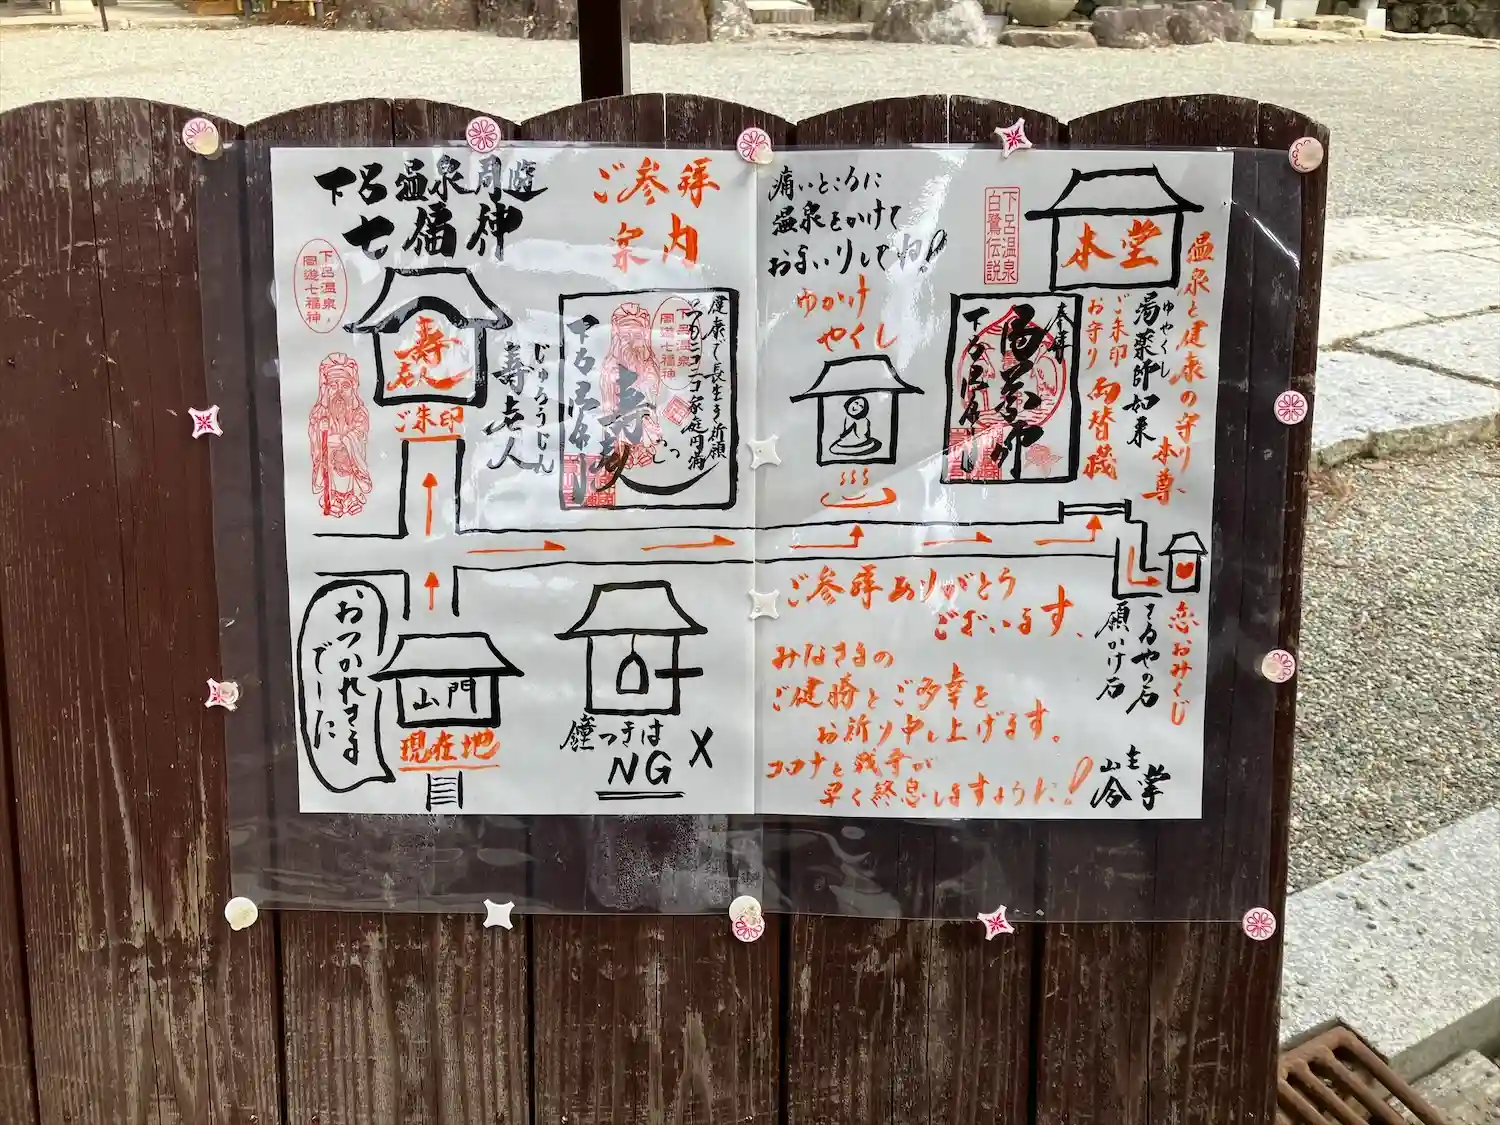 下呂温泉周遊
七福神
ご参拝
案内
下呂温泉
周遊七福神
寿
老人
ご朱印
じゅろうじん
寿老人
健康で長生き祈願
家庭円満
下呂温泉
周遊七福神
痛いところに
温泉をかけて
おまいりしてね!
ゆかけ
やくし
下呂温泉
白鷺伝説
本堂
温泉と健康の守り本尊
ゆやくし
湯薬師如来
ご朱印
お守り
両替機
奉拝
恋おみくじ
さるやの石
願かけ石
おつかれさま
でした
山門
現在地
鐘つきは
NG X
ご参拝ありがとう
ございます、
みなさまの
ご健勝とご多幸を
お祈り申し上げます。
コロナと戦争が
早く終息しますように!
山主